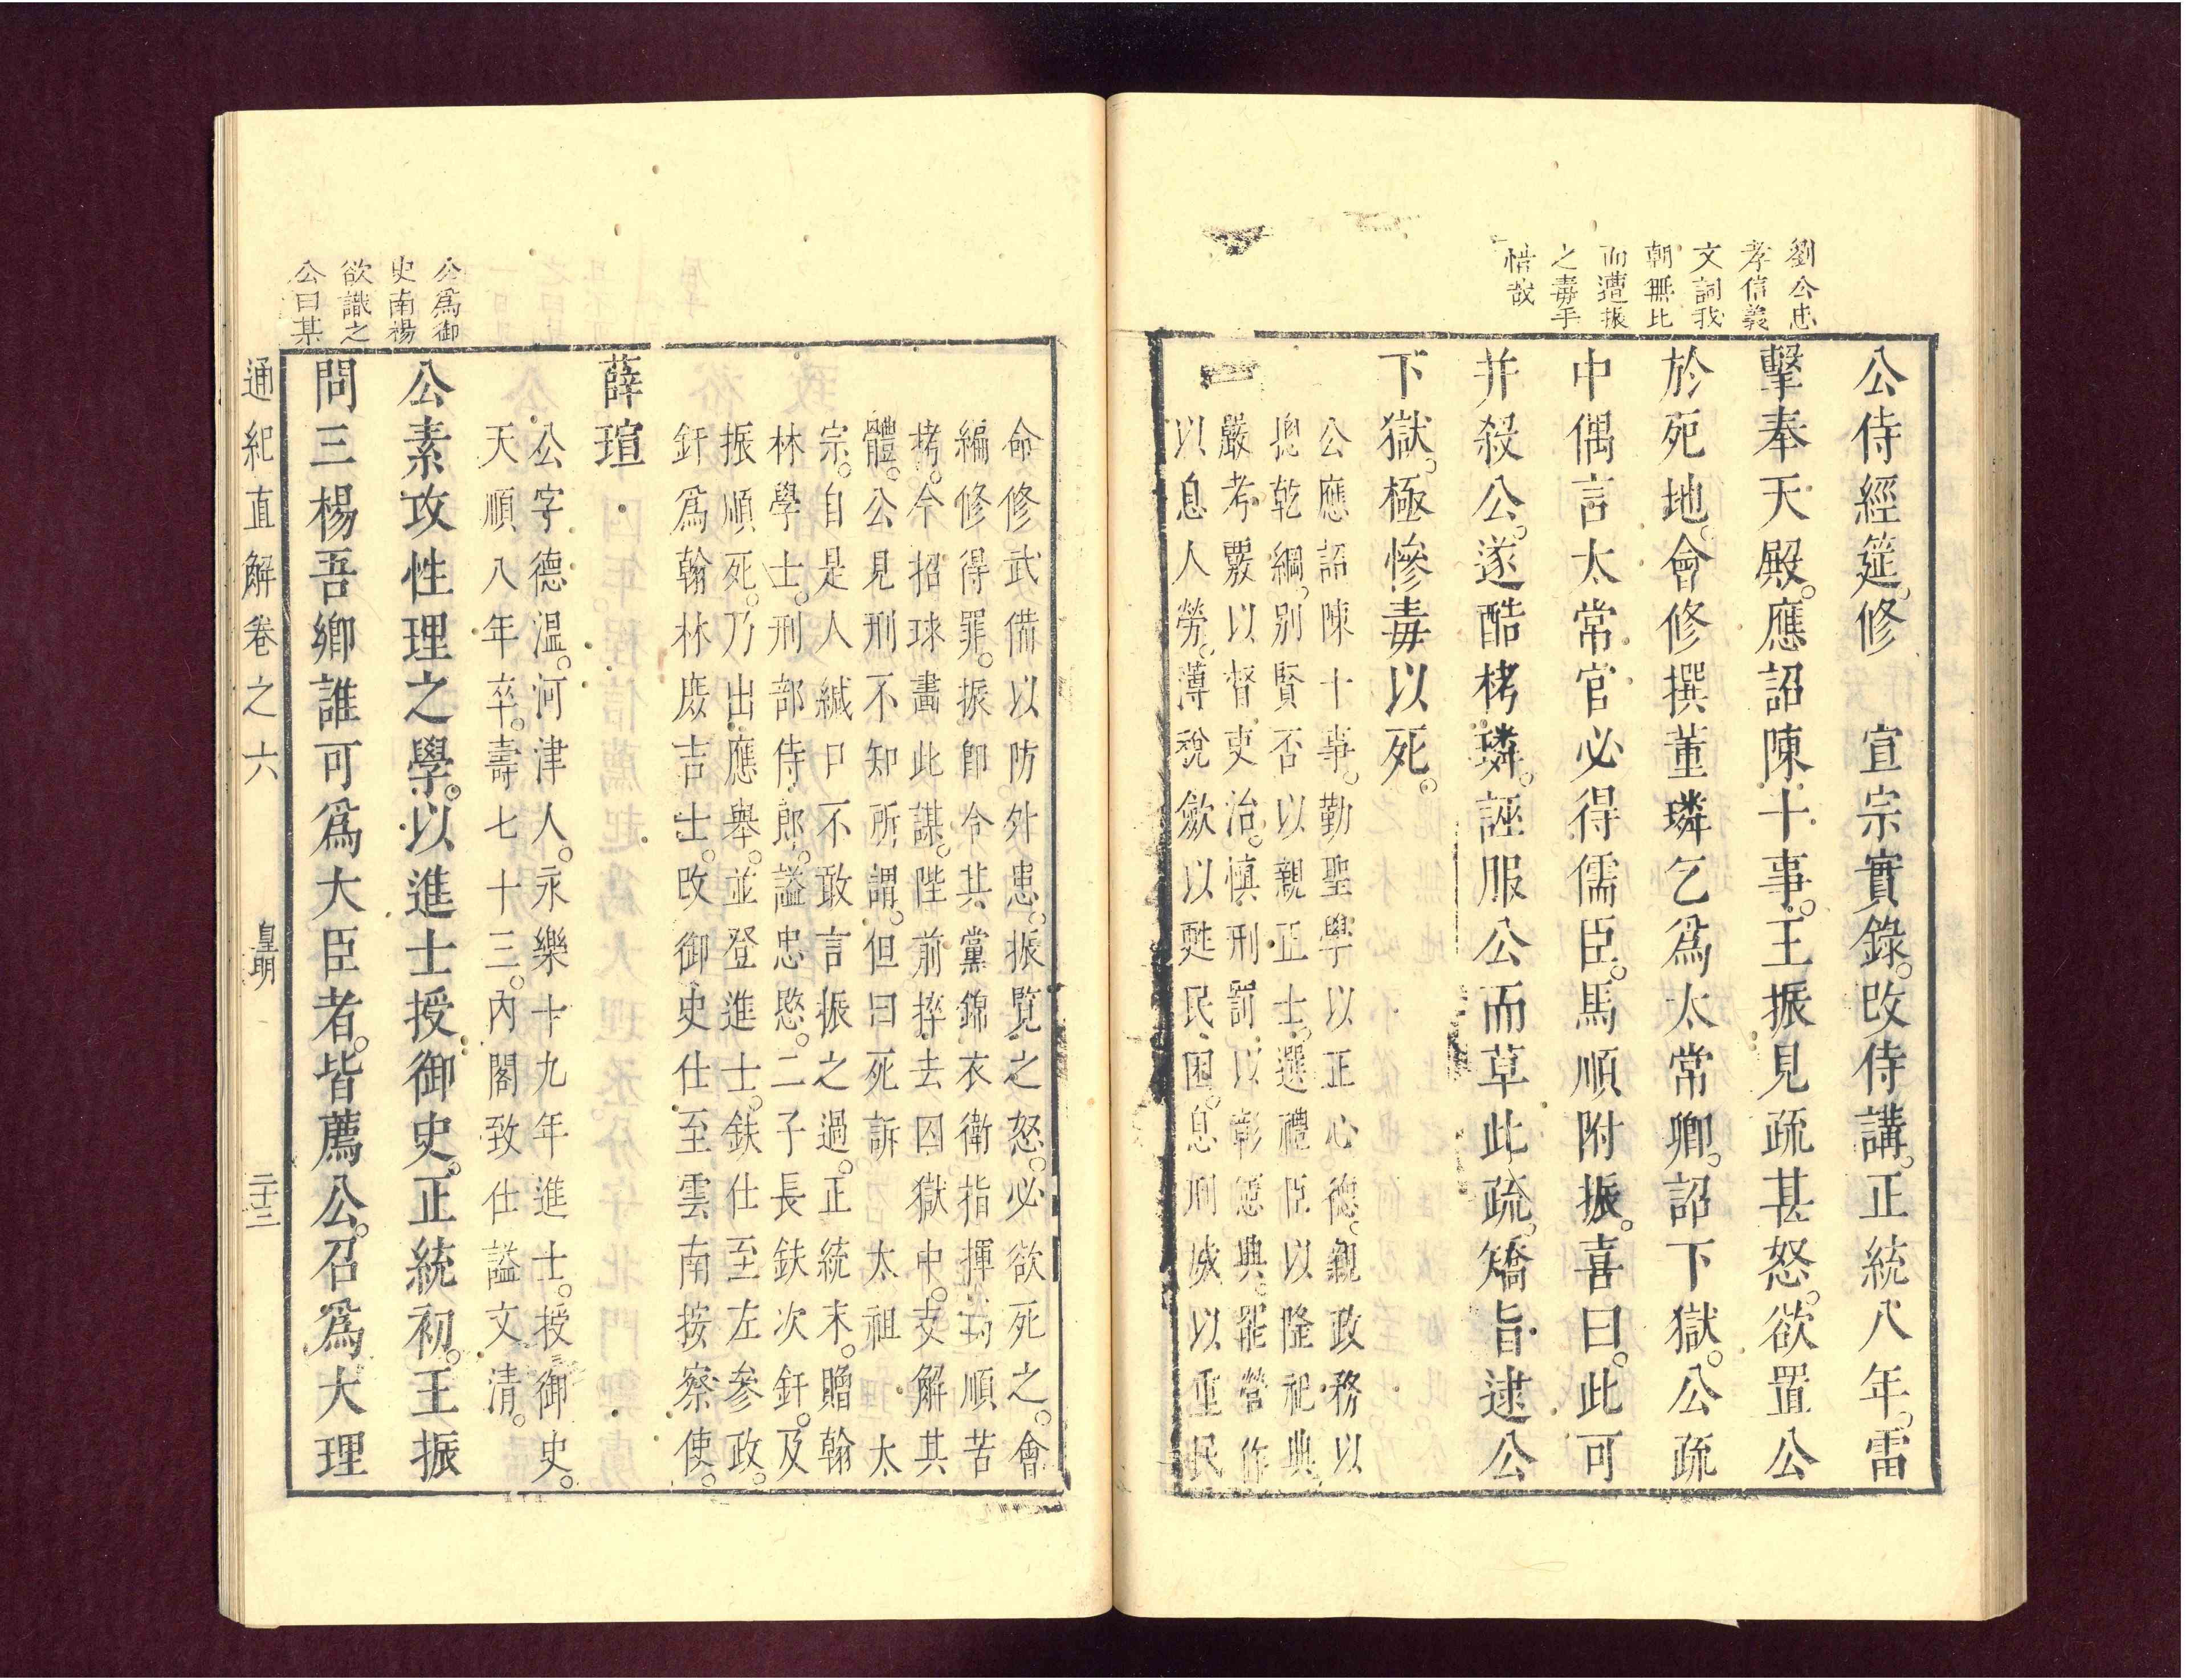 劉公忠
孝信義
文詞我
朝無比
而遭振
之毒手
惜哉
公侍經筵修　宣宗實錄。改侍講。正統八年。雷
擊奉天殿。應詔陳十事。王振見疏甚怒。欲置公
於死地。會修撰董璘乞爲太常卿。詔下獄。公疏
中偶言太常官必得儒臣。馬順附振。喜曰。此可
并殺公。遂酷栲璘。誣服公而草此疏。矯旨逮公
下獄。極慘毒以死。
公應詔陳十事。勤聖學以正心德。親政務以
揔乾綱。別賢否以親正士。選禮臣以隆祀典
嚴考覈以督吏治。慎刑罰以彰憲典。罷營作
以息人勞。薄稅斂以甦民困。息刑威以重民
命修武備以防外患。振覧之怒。必欲死之。會
編修得罪。振卽令其黨錦衣衛指揮馬順苦
栲。令招球畵此謀。陛前捽去囚獄中。支解其
體。公見刑不知所謂。但曰死訴　太祖　太
宗。自是人緘口不敢言振之過。正統末。贈翰
林學士。刑部侍郎。謚忠愍。二子長鈇次釬。及
振順死。乃出應舉。並登進士。鈇仕至左參政。
釬爲翰林庶吉士。改御史仕至雲南按察使。
薛瑄
公字德温。河津人。永樂十九年進士。授御史。
天順八年卒。壽七十三。內閣致仕謚文清。
公素攻性理之學。以進士授御史。正統初。王振
問三楊吾鄉誰可爲大臣者。皆薦公。召爲大理
公爲御
史南楊
欲識之
公曰某
通紀直解卷之六　皇明　二十三